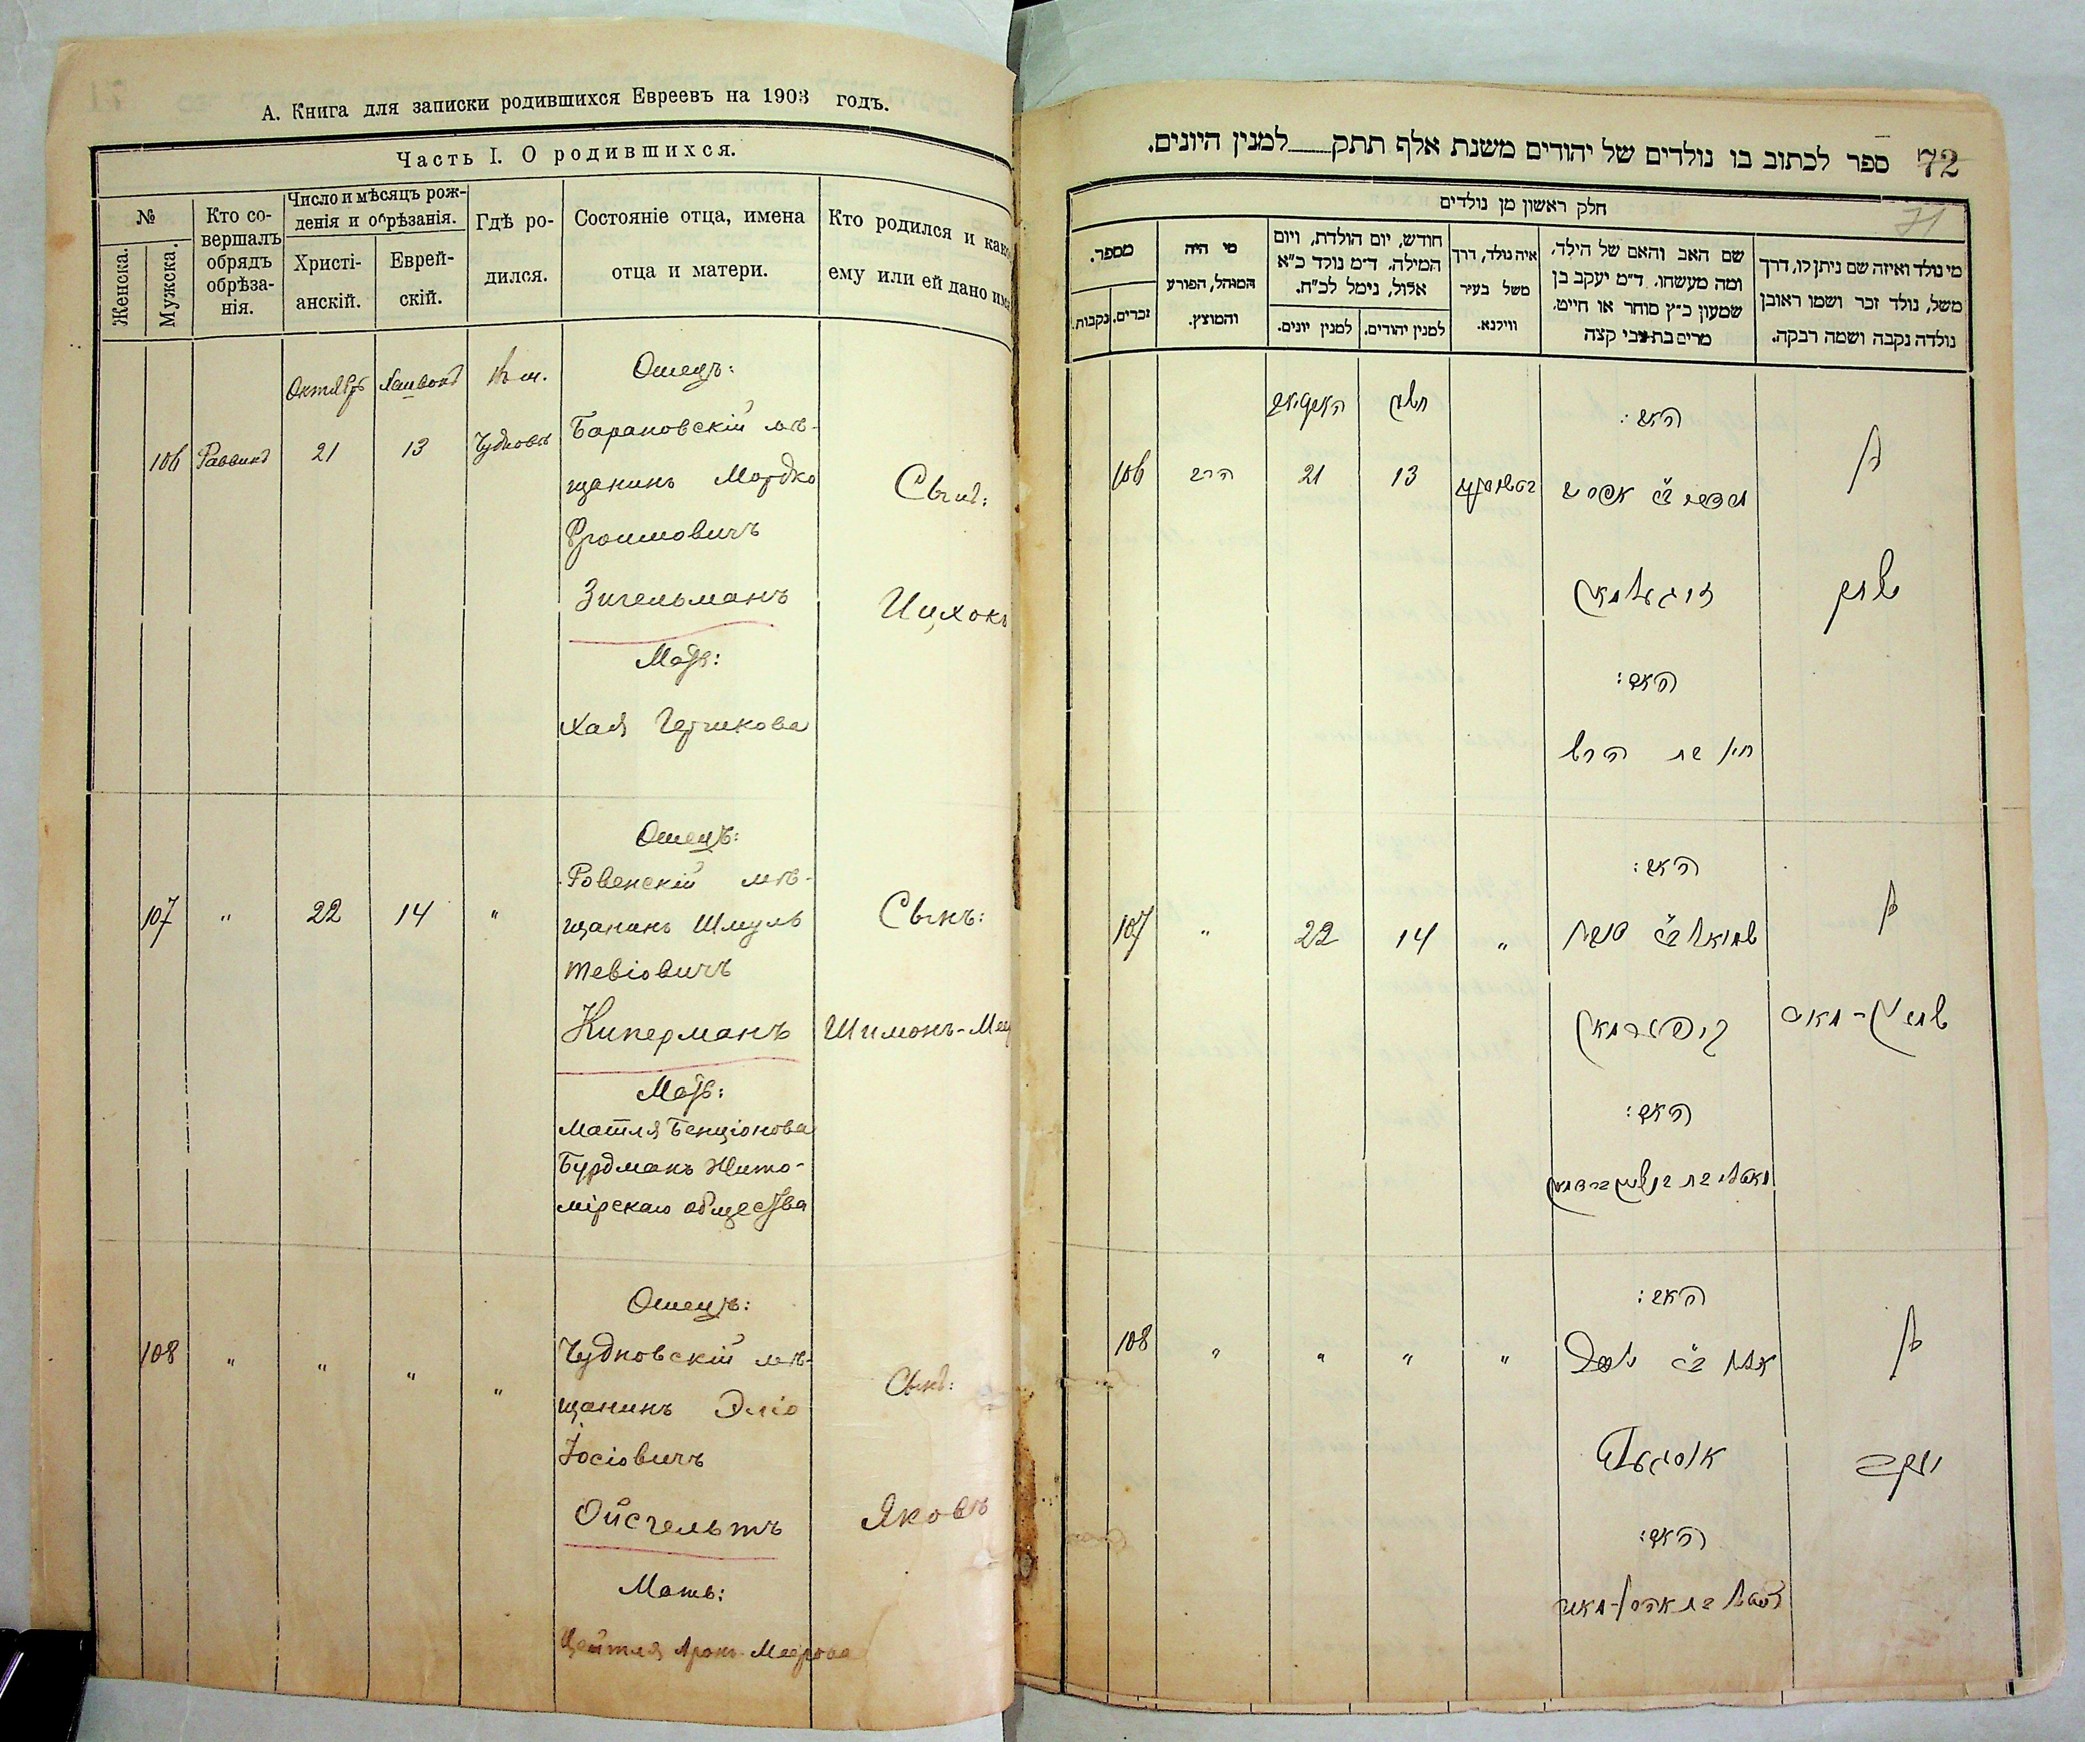 А. Книга для записки родившихся Евреевъ на 1903 годъ.
Часть I. О родившихся.
№
Женска.
Мужска.
Кто со-
вершалъ
обрядъ
обрѣза-
нія.
Число и мѣсяцъ рож-
денія и обрѣзанія.
Христі-
анскій.
Еврей-
скій.
Гдѣ ро-
дился.
Состояніе отца, имена
отца и матери.
Кто родился и како
ему или ей дано имя
Октябрь
Хешвонъ
Въ м.
106
Раввинъ
21
13
Чудновъ
Отецъ:
Барановскій мѣ-
щанинъ Мордко
Фроимовичъ
Зигельманъ
Мать:
Хая Гершкова
Сынъ:
Ицхокъ
107
"
22
14
"
Отецъ:
Ровенскій мѣ-
щанинъ Шмуль
Тевіовичъ
Киперманъ
Мать:
Матля Бенціонова
Бурдманъ Жито-
мірскаго общества
Сынъ:
Шимонъ-Меер
108
"
"
"
"
Отецъ:
Чудновскій мѣ-
щанинъ Эліо
Іосіовичъ
Ойсгельтъ
Мать:
Цейтля Аронъ-Меерова
Сынъ:
Яковъ
72
71
ספר לכתוב בו נולדים של יהודים משנת אלף תתק___למנין היונים.
חלק ראשון מן נולדים
מספר.
זכרים.
נקבות.
מי היה
המוהל, הפורע
והמוצץ.
חודש, יום הולדת, ויום
המילה. ד״מ נולד כ״א
אלול, נימל לכ״ח.
למנין יונים.
למנין יהודים.
איה נולד, דרך
משל בעיר
ווילנא.
שם האב והאם של הילד,
ומה מעשהו. ד״מ יעקב בן
שמעון כ״ץ סוחר או חייט.
מרים בת צבי קצה
מי נולד ואיזה שם ניתן לו, דרך
משל, נולד זכר ושמו ראובן
נולדה נקבה ושמה רבקה.
חשון
106
הרב
21
13
האב:
זיגעלמאן
האם:
חי׳ בת הרש
בן
יצחק
107
"
22
14
"
האב:
שמואל ב״ר טובי׳
קיפערמאן
האם:
בן
שמעון-מאיר
108
"
"
"
"
האב:
אלי׳ ב״ר יוסף
אוסגעלט
האם:
צייטל בת אהרן-מאיר
בן
יעקב